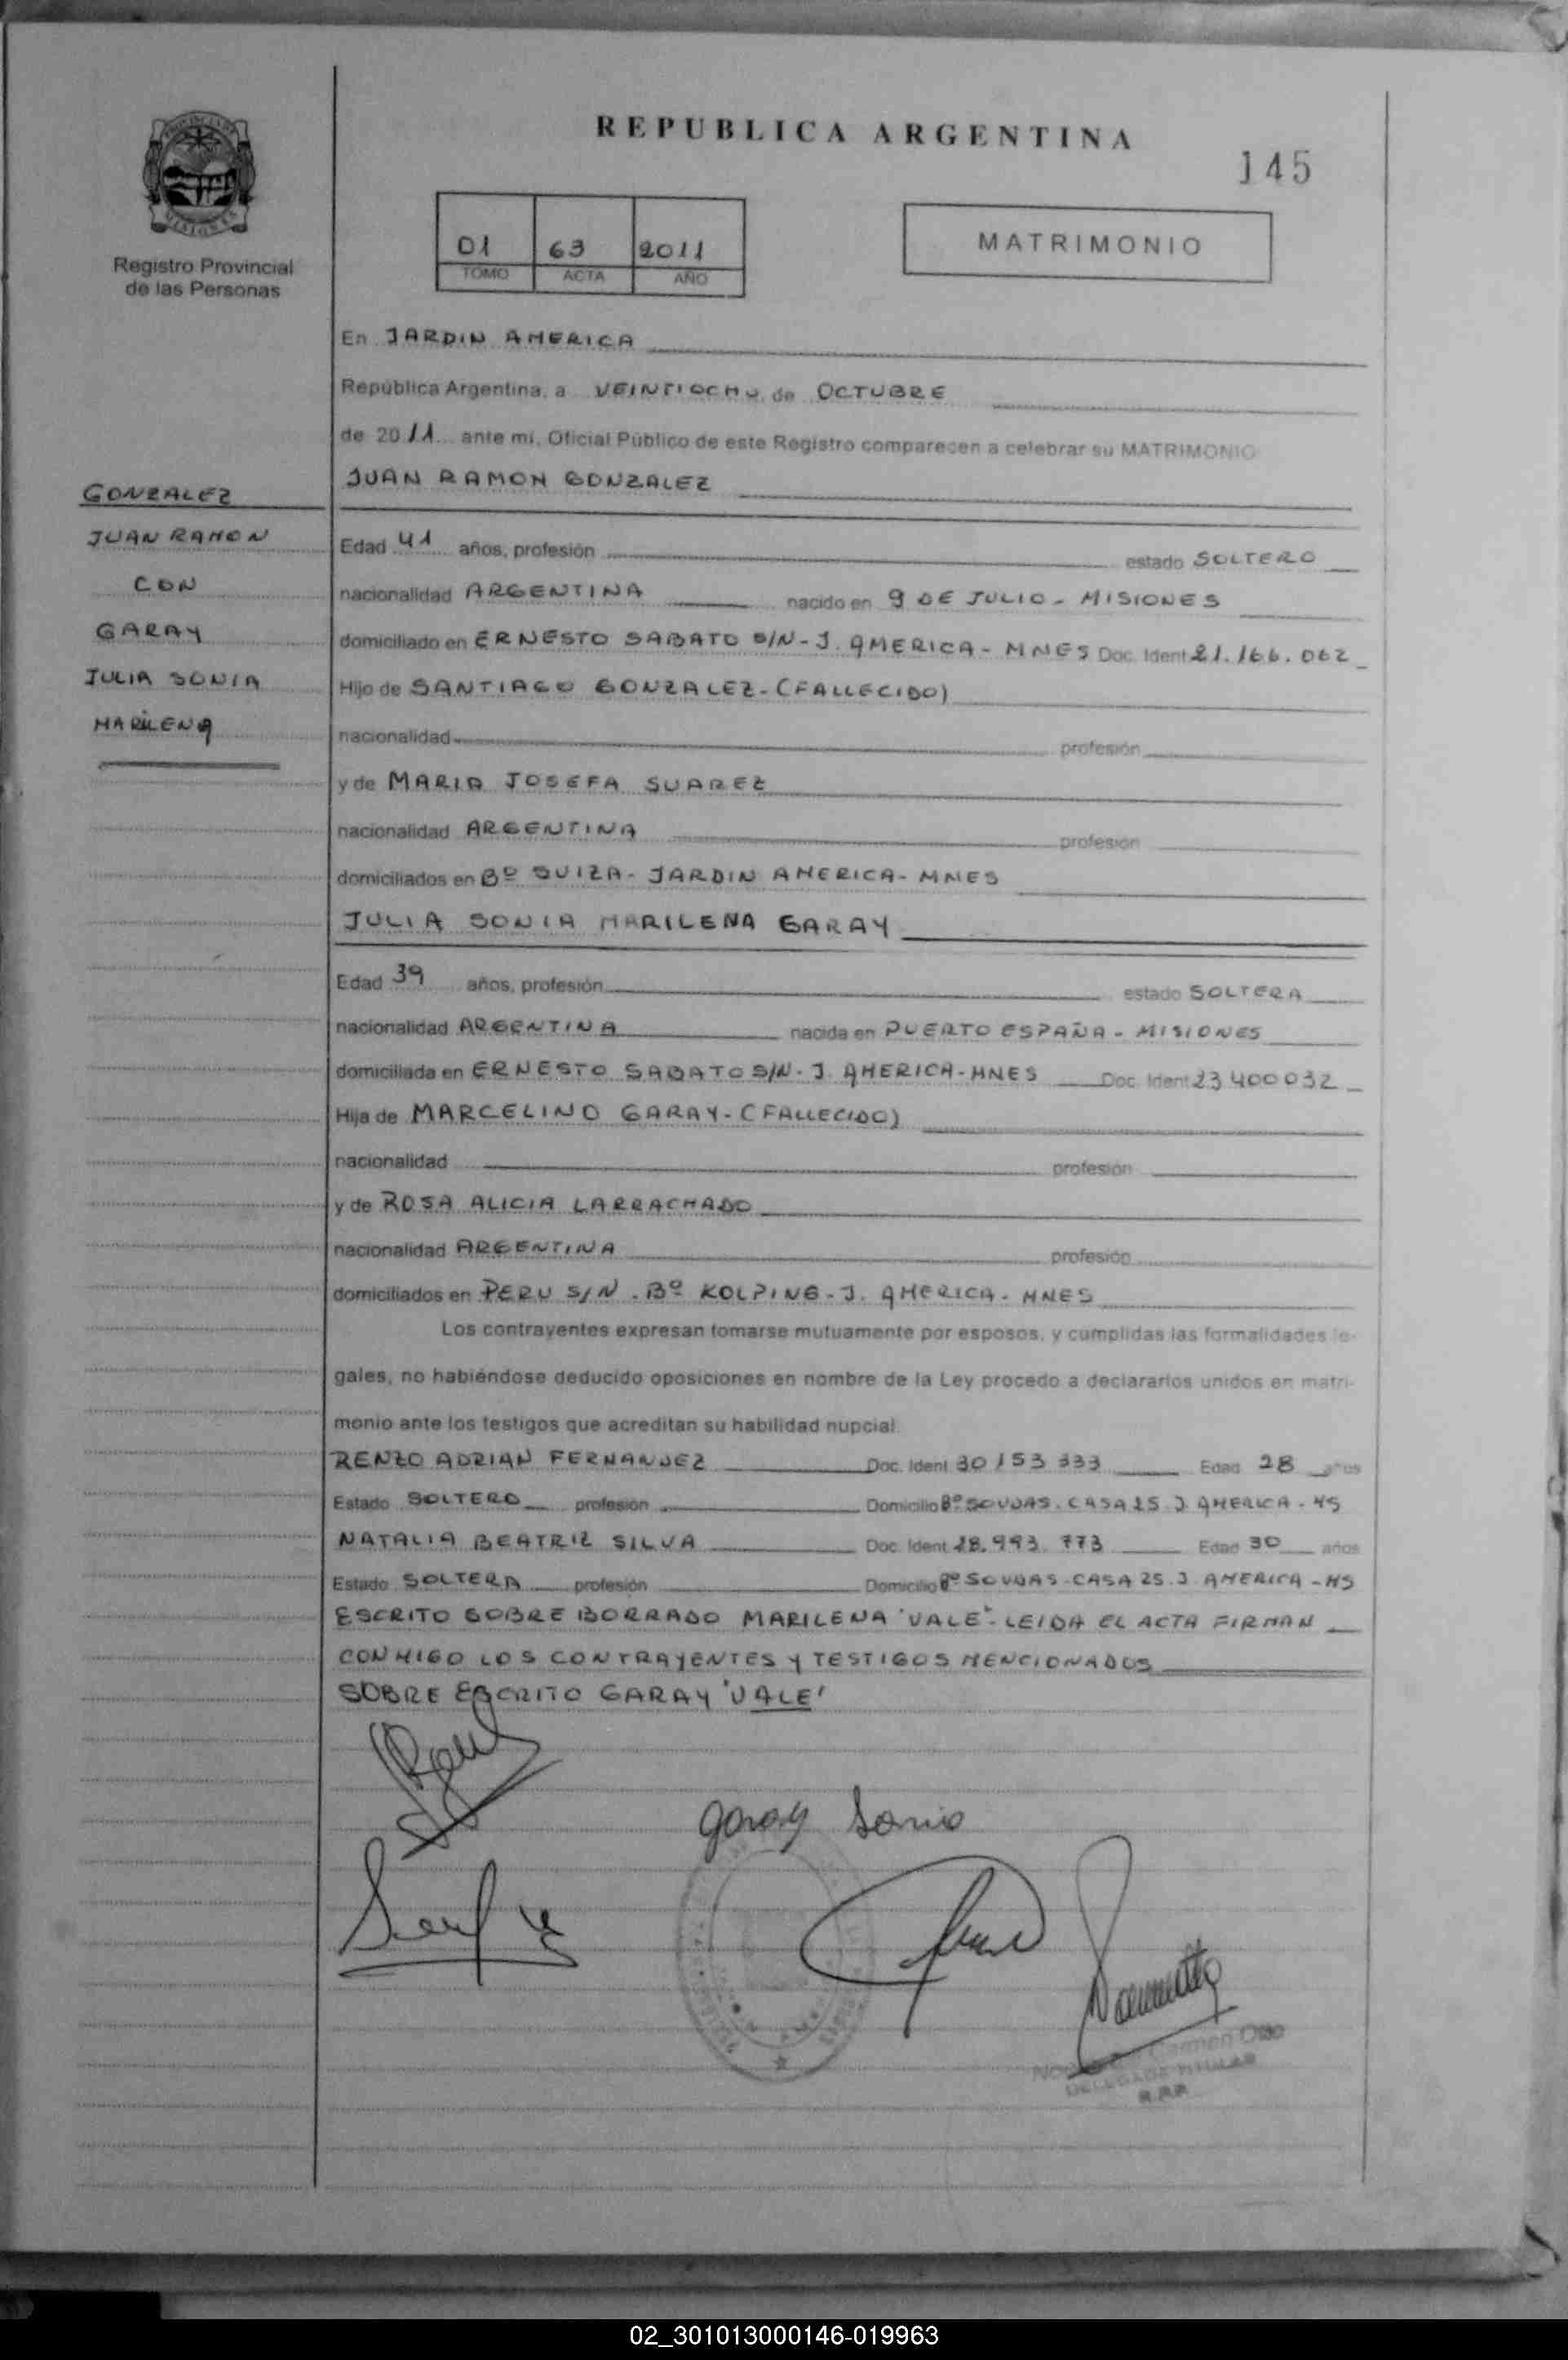 REPUBLICA ARGENTINA
145
Registro Provincial
de las Personas
01 63 2011
TOMO ACTA AÑO
MATRIMONIO
En JARDIN AMERICA
República Argentina, a VEINTIOCHO de OCTUBRE
de 2011 ante mi, Oficial Público de este Registro comparecen a celebrar su MATRIMONIO
JUAN RAMON GONZALEZ
GONZALEZ
JUAN RAMON
CON
GARAY
JULIA SONIA
MARILENA
Edad 41 años, profesión estado SOLTERO
nacionalidad ARGENTINA nacido en 9 DE JULIO - MISIONES
domiciliado en ERNESTO SABATO S/N - J. AMERICA - MNES Doc. Ident 21.166.062
Hijo de SANTIAGO GONZALEZ - (FALLECIDO)
nacionalidad profesión
y de MARIA JOSEFA SUAREZ
nacionalidad ARGENTINA profesión
domiciliados en Bº SUIZA - JARDIN AMERICA - MNES
JULIA SONIA MARILENA GARAY
Edad 39 años, profesión estado SOLTERA
nacionalidad ARGENTINA nacida en PUERTO ESPAÑA - MISIONES
domiciliada en ERNESTO SABATO S/N - J. AMERICA - MNES Doc. Ident 23400032
Hija de MARCELINO GARAY - (FALLECIDO)
nacionalidad profesión
y de ROSA ALICIA LARRACHADO
nacionalidad ARGENTINA profesión
domiciliados en PERU S/N - Bº KOLPING - J. AMERICA - MNES
Los contrayentes expresan tomarse mutuamente por esposos, y cumplidas las formalidades le-
gales, no habiéndose deducido oposiciones en nombre de la Ley procedo a declararlos unidos en matri-
monio ante los testigos que acreditan su habilidad nupcial.
RENZO ADRIAN FERNANDEZ Doc. Ident 30153333 Edad 28 años
Estado SOLTERO profesión Domicilio Bº CASA 25 J. AMERICA - MS
NATALIA BEATRIZ SILVA Doc. Ident 28.993.773 Edad 30 años
Estado SOLTERA profesión Domicilio Bº CASA 25. J. AMERICA - MS
ESCRITO SOBRE BORRADO MARILENA "VALE" - LEIDA EL ACTA FIRMAN
CONMIGO LOS CONTRAYENTES Y TESTIGOS MENCIONADOS
SOBRE ESCRITO GARAY 'VALE'
garay Sonia
DELEGADA TITULAR
R.P.P.
02_301013000146-019963